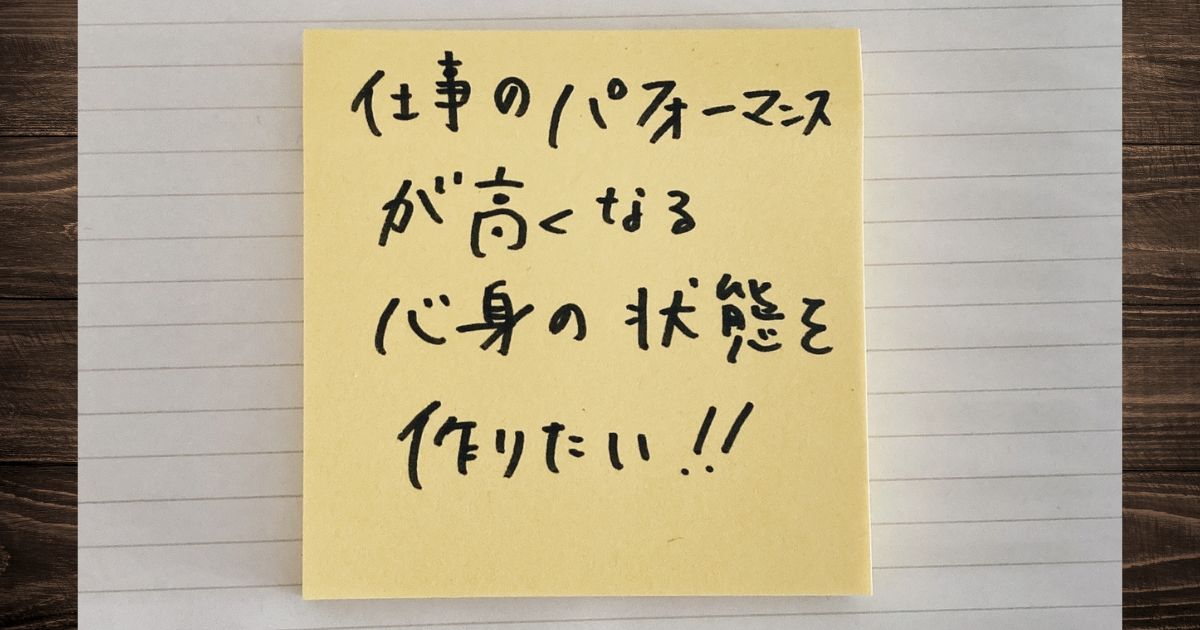 仕事のパフォーマンス
が高くなる
心身の状態を
作りたい!!